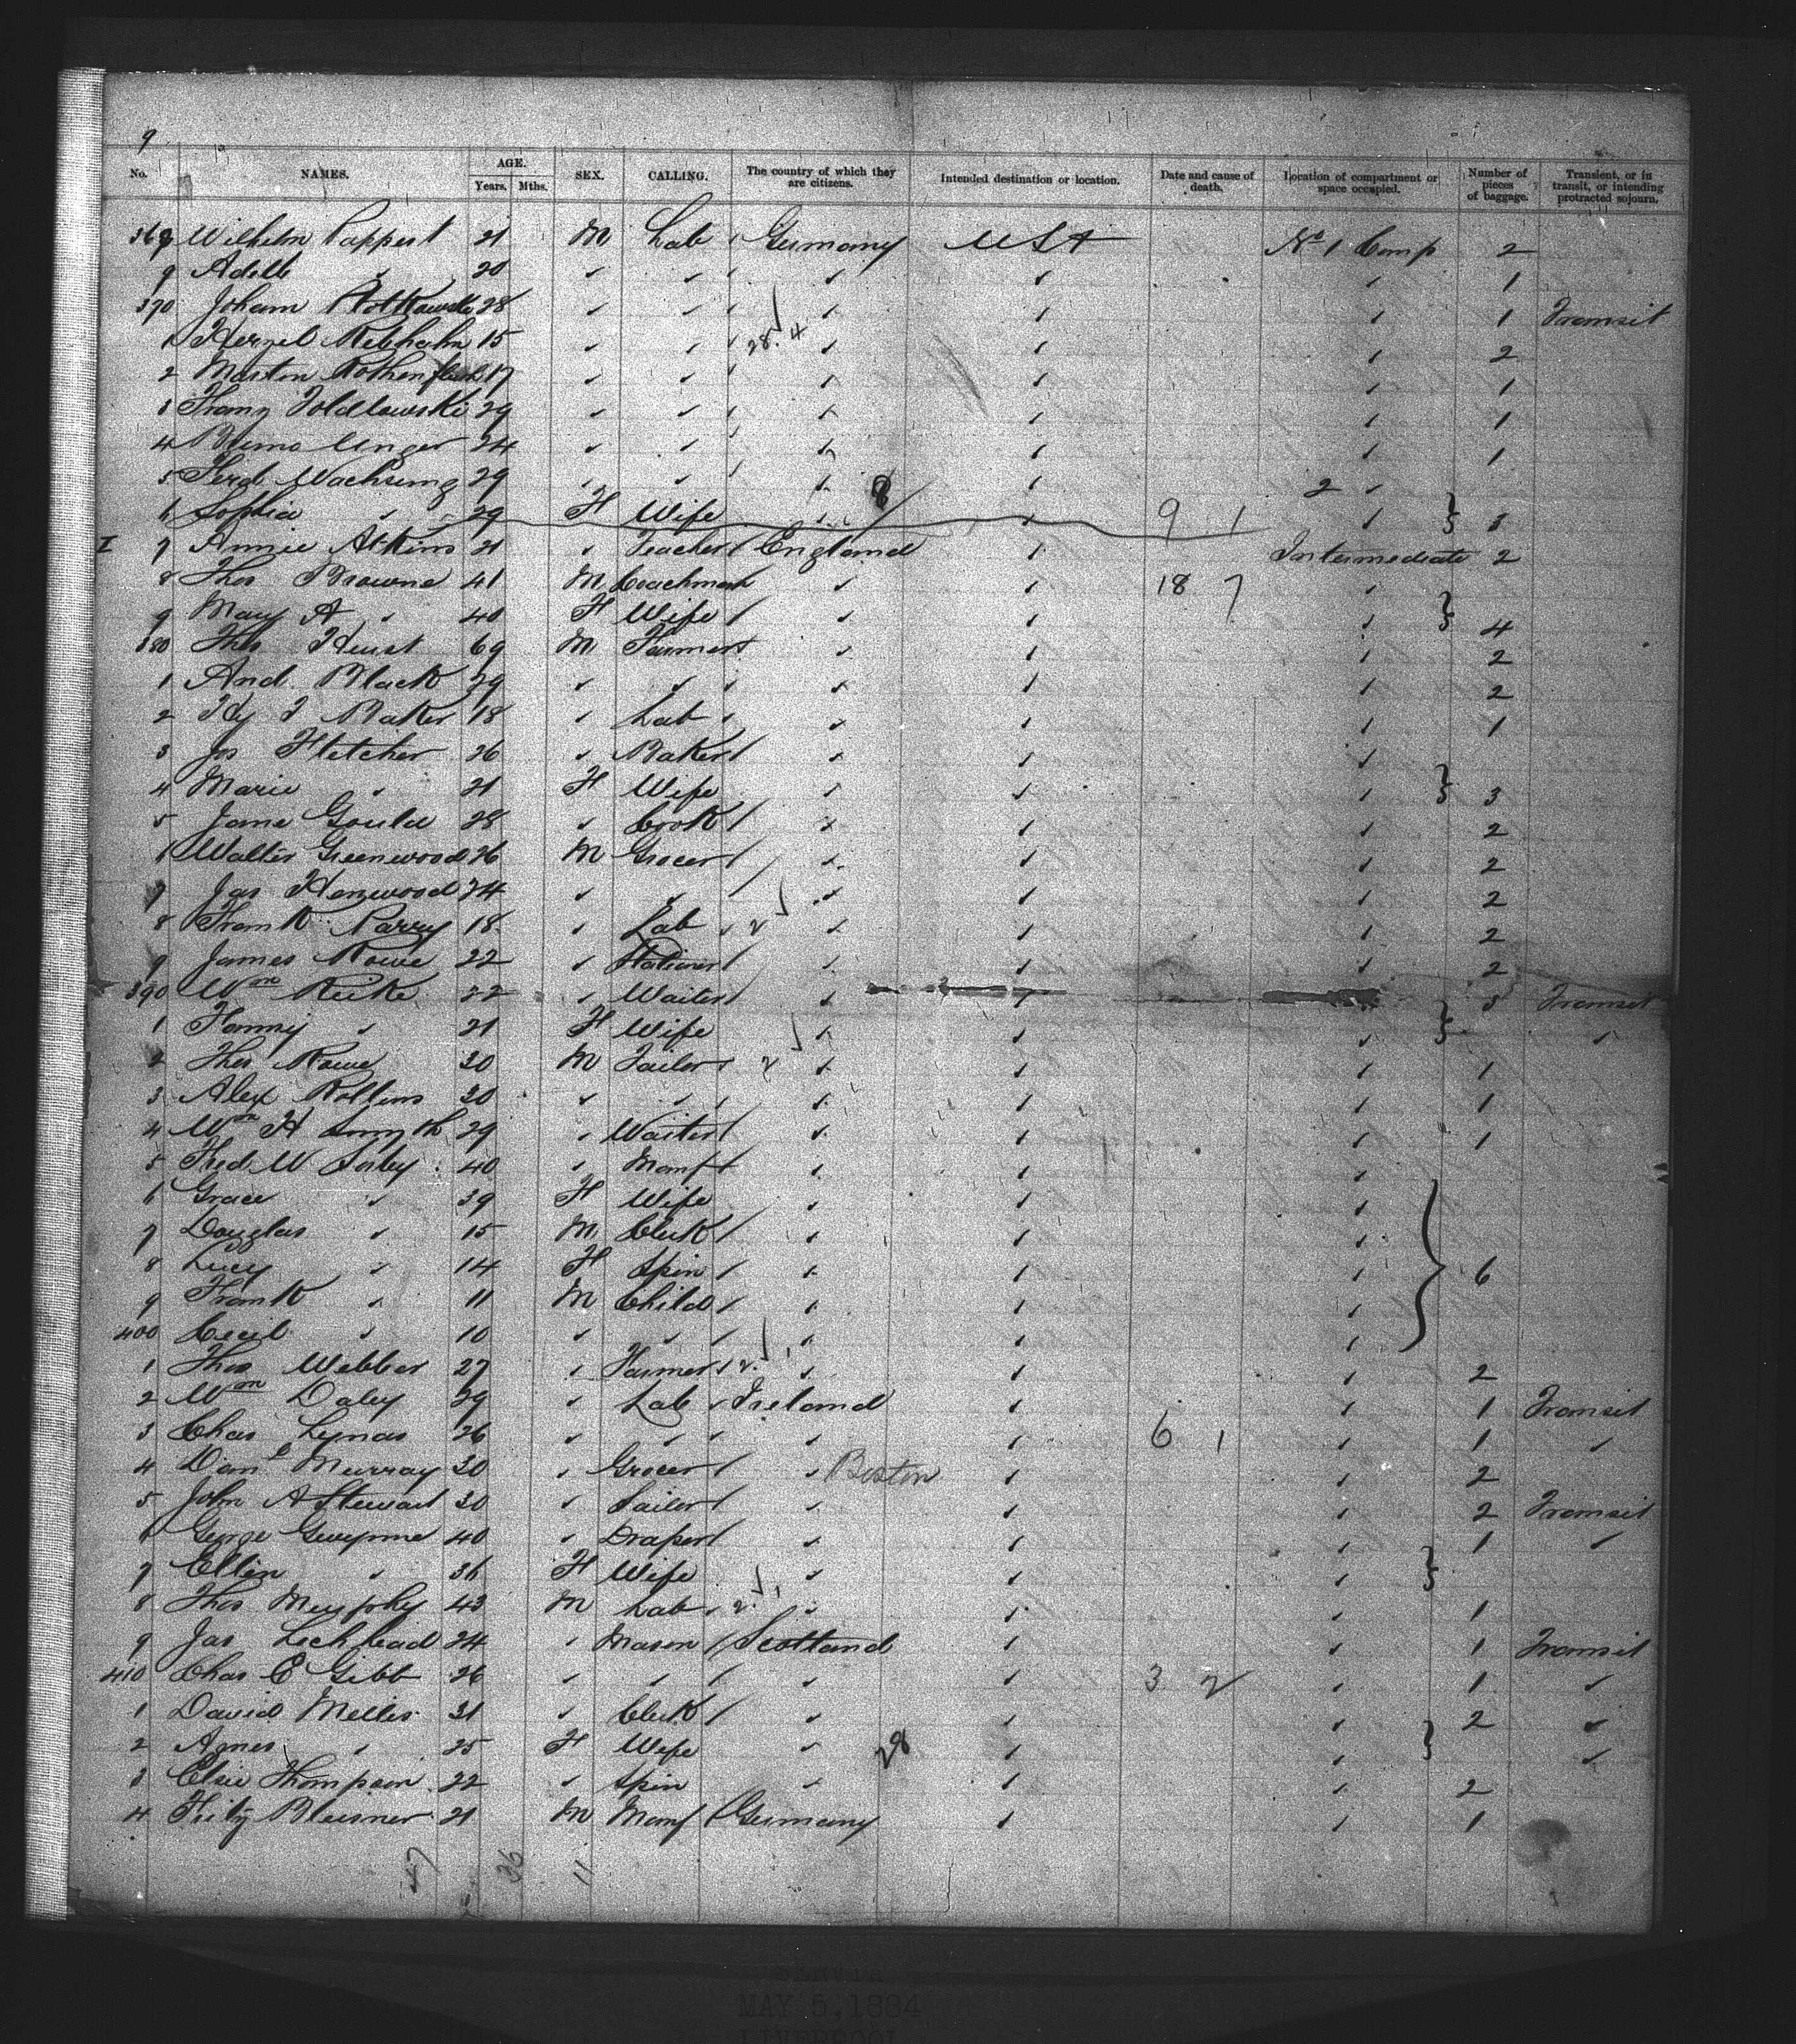 9
No. NAMES. AGE. Years. Mths. SEX. CALLING. The country of which they are citizens. Intended destination or location. Date and cause of death. Location of compartment or space occupied. Number of pieces of baggage. Transient, or in transit, or intending protracted sojourn.
368 Wilhelm Pappert 21 M Lab Germany USA No 1 Comp 2
9 Adolb " 20 " " " " " 1
370 Johann 28 " " " " " 1 Transit
1 Rebhahn 15 " " 28.4 " " " 2
2 Martin 17 " " " " " 1
3 Franz 29 " " " " " 1
4 Unger 24 " " " " " 1
5 Ferd 29 " " " " 2 "
6 Sophia " 29 F Wife " 8 " 9 1 " } 3
I 7 Annie Atkins 21 " Teacher England " Intermediate 2
8 Thos Browne 41 M Coachman " " 18 7 "
9 Mary A " 40 F Wife " " " } 4
380 Thos Hurst 69 M Farmer " " " 2
1 And. Black 29 " " " " " 2
2 Hy J Baker 18 " Lab " " " 1
3 Jos Fletcher 26 " Baker " " "
4 Marie " 21 F Wife " " " } 3
5 Jane Gould 28 " Cook " " " 2
6 Walter Greenwood 26 M Grocer " " " 2
7 Jas Henwood 24 " " " " " 2
8 Frank Parry 18 " Lab 2 " " " 2
9 James Rowe 22 " Stationer " " " 2
390 Wm 22 " Waiter " " " 3 Transit
1 Fanny " 21 F Wife " " " } "
2 Thos Rowe 30 M Tailor 2 " " " 1
3 Alex Rollins 30 " " " " " 1
4 Wm H Smyth 29 " Waiter " " " 1
5 Fred W Sorby 40 " Manf " " "
6 Grace " 39 F Wife " " "
7 Douglas " 15 M Clerk " " "
8 Lucy " 14 F Spin " " " } 6
9 Frank " 11 M Child " " "
400 Cecil " 10 " " " " "
1 Thos Webber 27 " Farmer 2 " " " 2
2 Wm Daley 29 " Lab Ireland " " 1 Transit
3 Chas Lynas 26 " " " " 6 1 " 1 "
4 Danl Murray 30 " Grocer " Boston " " 2
5 John A Stewart 30 " Sailor " " " 2 Transit
6 George Gwynne 40 " Draper " " " 1 "
7 Ellen " 36 F Wife " " " }
8 Thos Murphy 43 M Lab 2 " " " 1
9 Jas Lochhead 24 " Mason Scotland " " 1 Transit
410 Chas E Gibb 26 " " " " 3 2 " 1 "
1 David Mellis 31 " Clerk " " " 2 "
2 Agnes " 25 F Wife " 28 " " } "
3 Elsie Thompson 22 " Spin " " " 2
4 21 M Manf Germany " " 1
47 36 11
MAY 5, 1884
LIVERPOOL